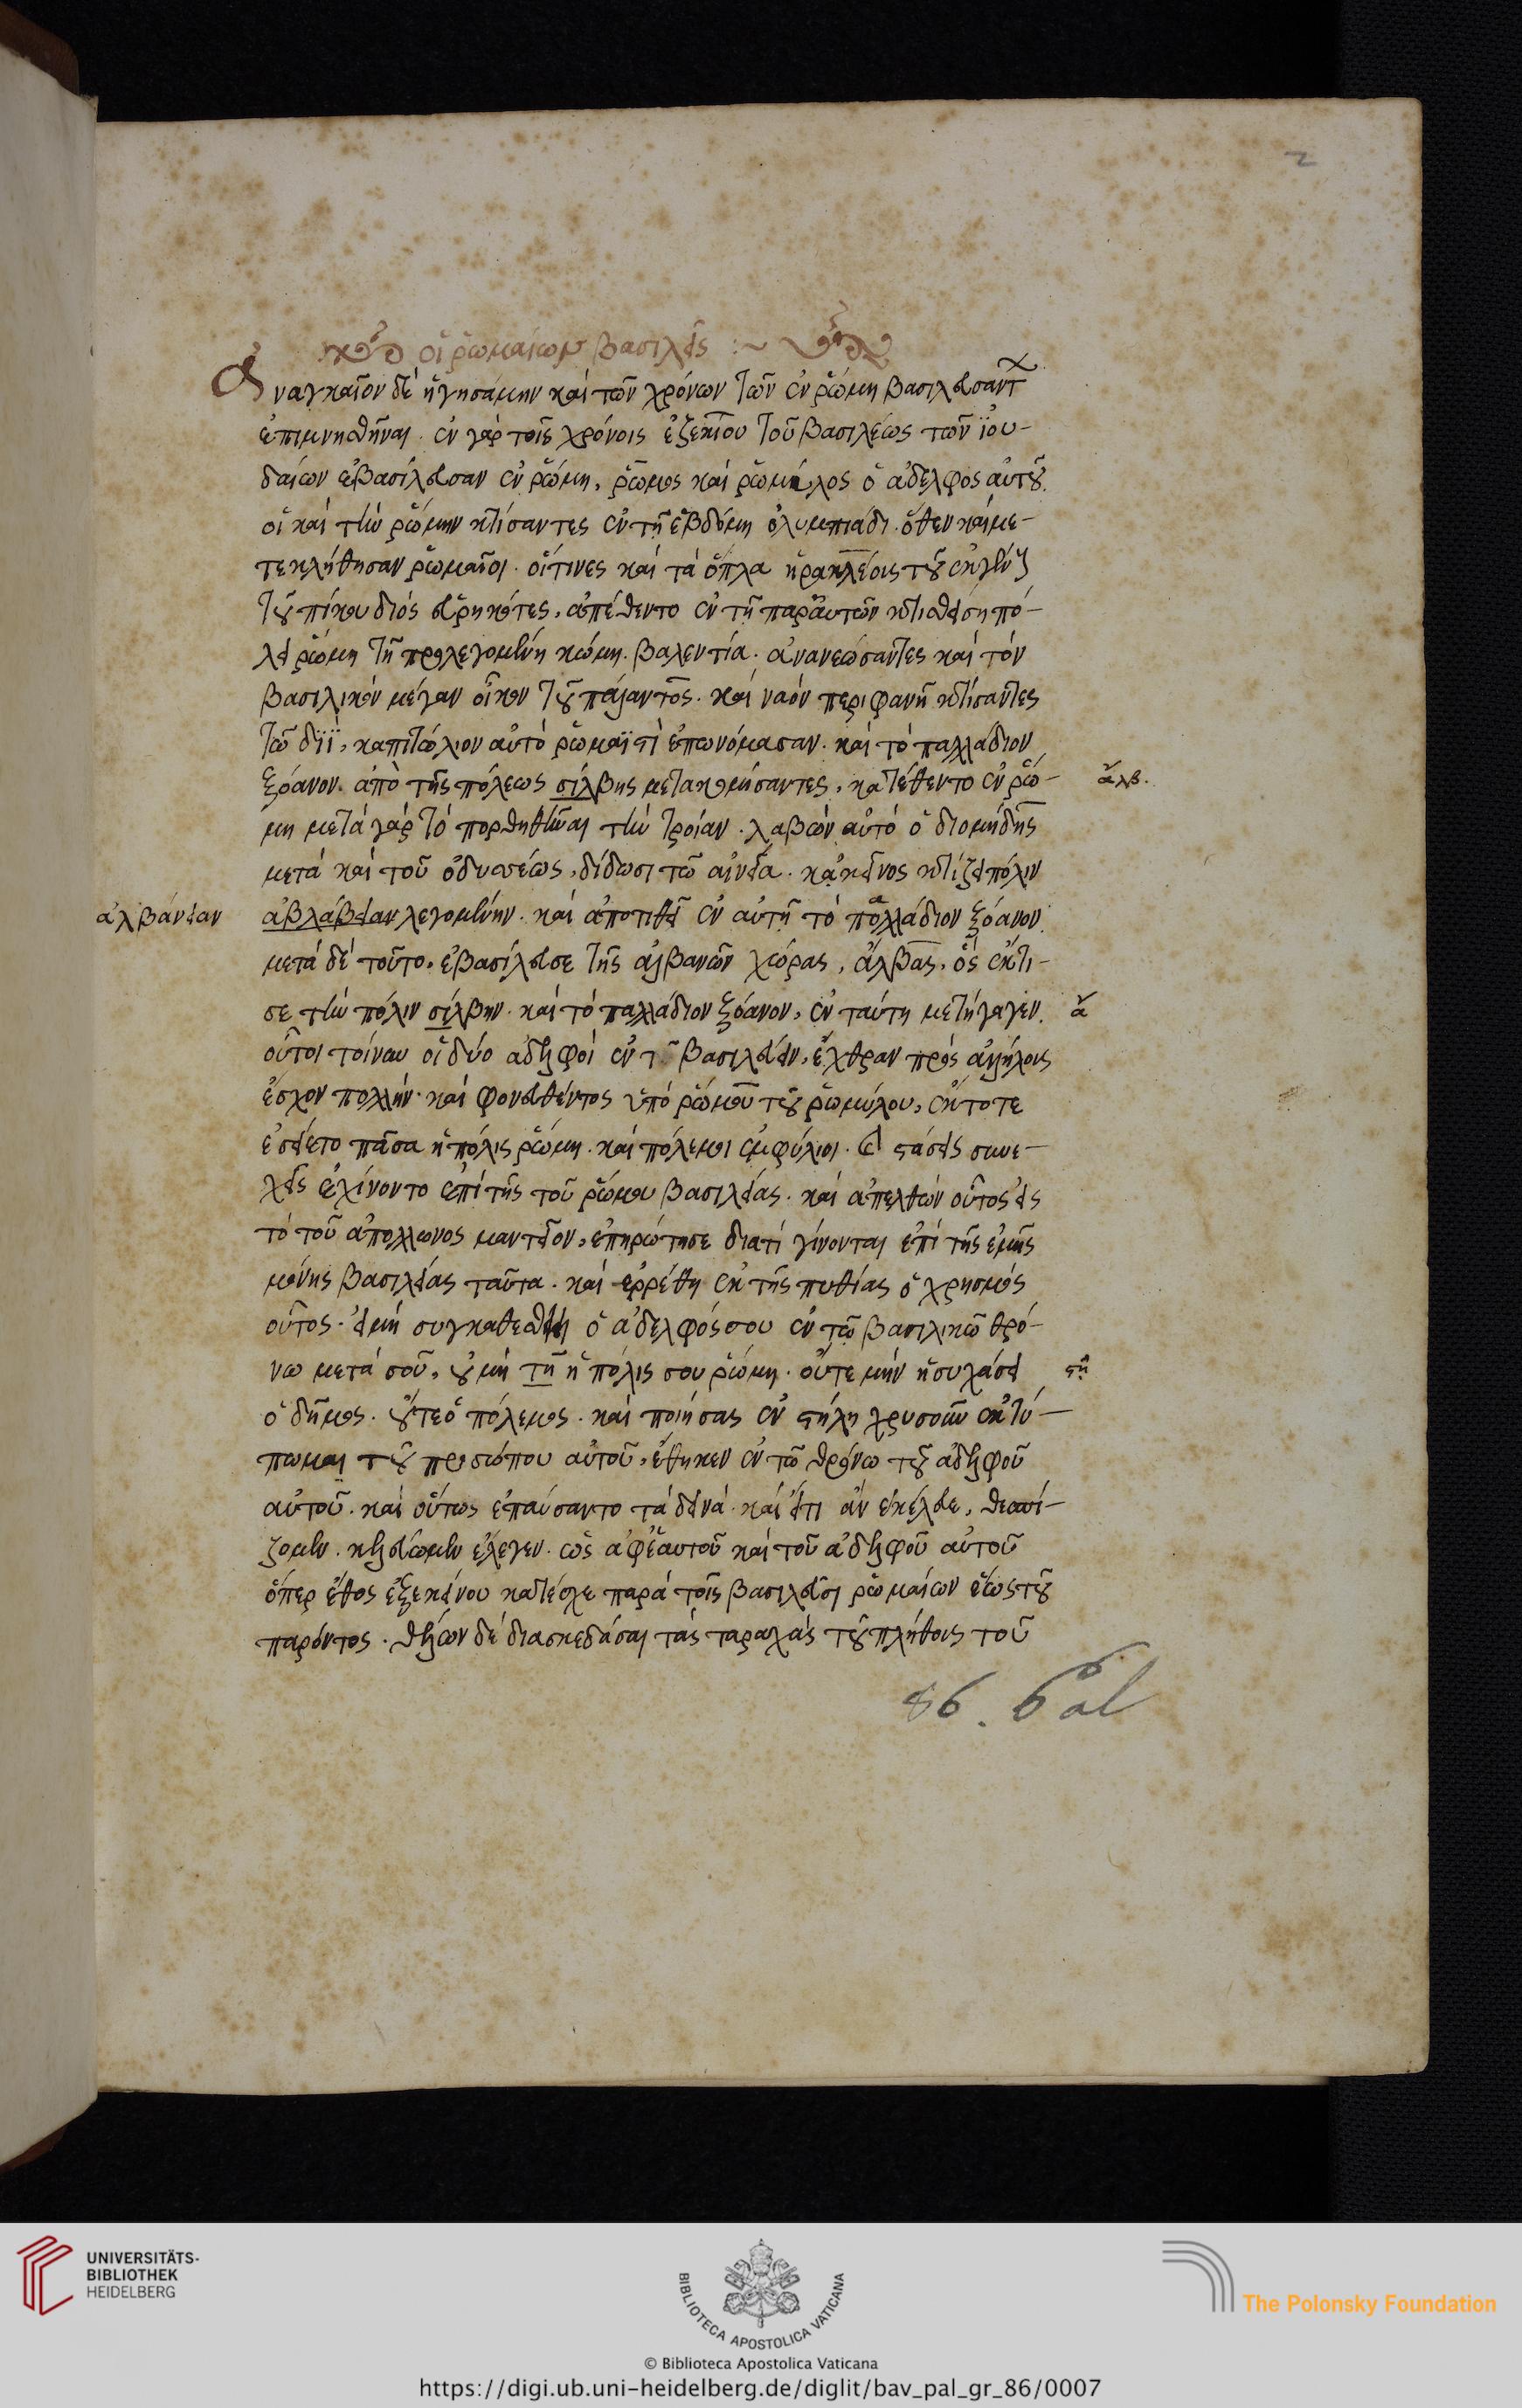 2
οἱ ῥωμαίων βασιλεῖς :~
Ἀναγκαῖον δὲ ἡγησάμην καὶ τῶν χρόνων τῶν ἐν ῥώμῃ βασιλευσάντ
ἐπιμνησθῆναι. ἐν γὰρ τοῖς χρόνοις ἐζεκίου τοῦ βασιλέως τῶν ἰου-
δαίων ἐβασίλευσαν ἐν ῥώμῃ, ῥῶμος καὶ ῥωμύλος ὁ ἀδελφὸς αὐτοῦ.
οἳ καὶ τὴν ῥώμην κτίσαντες ἐν τῇ ἑβδόμῃ ὀλυμπιάδι. ὅθεν καὶ με-
τεκλήθησαν ῥωμαῖοι. οἵτινες καὶ τὰ ὅπλα ἡρακλέους τοῦ ἐκ γένους
τοῦ πίκου διὸς εὑρηκότες, ἀπέθεντο ἐν τῇ παρ' αὐτῶν κτισθείσῃ πό-
λει ῥώμῃ τῇ προλεγομένῃ κώμῃ. βαλεντία. ἀνανεώσαντες καὶ τὸν
βασιλικὸν μέγαν οἶκον τοῦ πάλαντος. καὶ ναὸν περιφανῆ κτίσαντες
τῶ διΐ, καπιτώλιον αὐτὸ ῥωμαϊστὶ ἐπωνόμασαν. καὶ τὸ παλλάδιον
ξόανον. ἀπὸ τῆς πόλεως σίλβης μετακομίσαντες, κατέθεντο ἐν ῥώ-
ἄλβ.
μη μετὰ γὰρ τὸ πορθηθῆναι τὴν τροίαν. λαβὼν αὐτὸ ὁ διομήδης
μετὰ καὶ τοῦ ὀδυσσέως, δίδωσι τῶ αἰνεία. κἀκεῖνος κτίζει πόλιν
ἀλβάνειαν
ἀβλάβειαν λεγομένην. καὶ ἀποτιθεῖ ἐν αὐτῇ τὸ παλλάδιον ξόανον.
μετὰ δὲ τοῦτο, ἐβασίλευσε τῆς ἀλβανῶν χώρας, ἄλβας, ὃς ἔκτι-
σε τὴν πόλιν σίλβην. καὶ τὸ παλλάδιον ξόανον, ἐν ταύτῃ μετήγαγεν.
ἄ
οὗτοι τοίνυν οἱ δύο ἀδελφοὶ ἐν τ βασιλεύειν, ἔχθραν πρὸς ἀλλήλους
ἔσχον πολλήν. καὶ φονευθέντος ὑπὸ ῥώμου τοῦ ῥωμύλου, ἔκτοτε
ἐσείετο πᾶσα ἡ πόλις ῥώμη. καὶ πόλεμοι ἐμφύλιοι. καὶ στάσεις συνε-
χεῖς ἐγίνοντο ἐπὶ τῆς τοῦ ῥώμου βασιλείας. καὶ ἀπελθὼν οὗτος εἰς
τὸ τοῦ ἀπόλλωνος μαντεῖον, ἐπηρώτησε διατί γίνονται ἐπὶ τῆς ἐμῆς
μόνης βασιλείας ταῦτα. καὶ ἐρρέθη ἐκ τῆς πυθίας ὁ χρησμὸς
οὗτος. εἰ μὴ συγκαθεσθῇ ὁ ἀδελφός σου ἐν τῶ βασιλικῶ θρό-
νω μετὰ σοῦ, οὐ μὴ τῇ ἡ πόλις σου ῥώμη. οὔτε μὴν ἡσυχάσει
στῇ
ὁ δῆμος. οὔτε ὁ πόλεμος. καὶ ποιήσας ἐν στήλη χρυσοῦν ἐκτύ-
πωμα τοῦ προσώπου αὐτοῦ, ἔθηκεν ἐν τῶ θρόνω τοῦ ἀδελφοῦ
αὐτοῦ. καὶ οὕτως ἐπαύσαντο τὰ δεινά. καὶ εἴ τι ἂν ἐκέλευε, θεσπί-
ζομεν. κελεύομεν ἔλεγεν. ὡς ἀφ' ἑαυτοῦ καὶ τοῦ ἀδελφοῦ αὐτοῦ
ὅπερ ἔθος ἐξ ἐκείνου κατέσχε παρὰ τοῖς βασιλεῦσι ῥωμαίων ἕως τοῦ
παρόντος. θέλων δὲ διασκεδάσαι τὰς ταραχὰς τοῦ πλήθους τοῦ
86. Pal
UNIVERSITÄTS-
BIBLIOTHEK
HEIDELBERG
BIBLIOTECA APOSTOLICA VATICANA
The Polonsky Foundation
© Biblioteca Apostolica Vaticana
https://digi.ub.uni-heidelberg.de/diglit/bav_pal_gr_86/0007